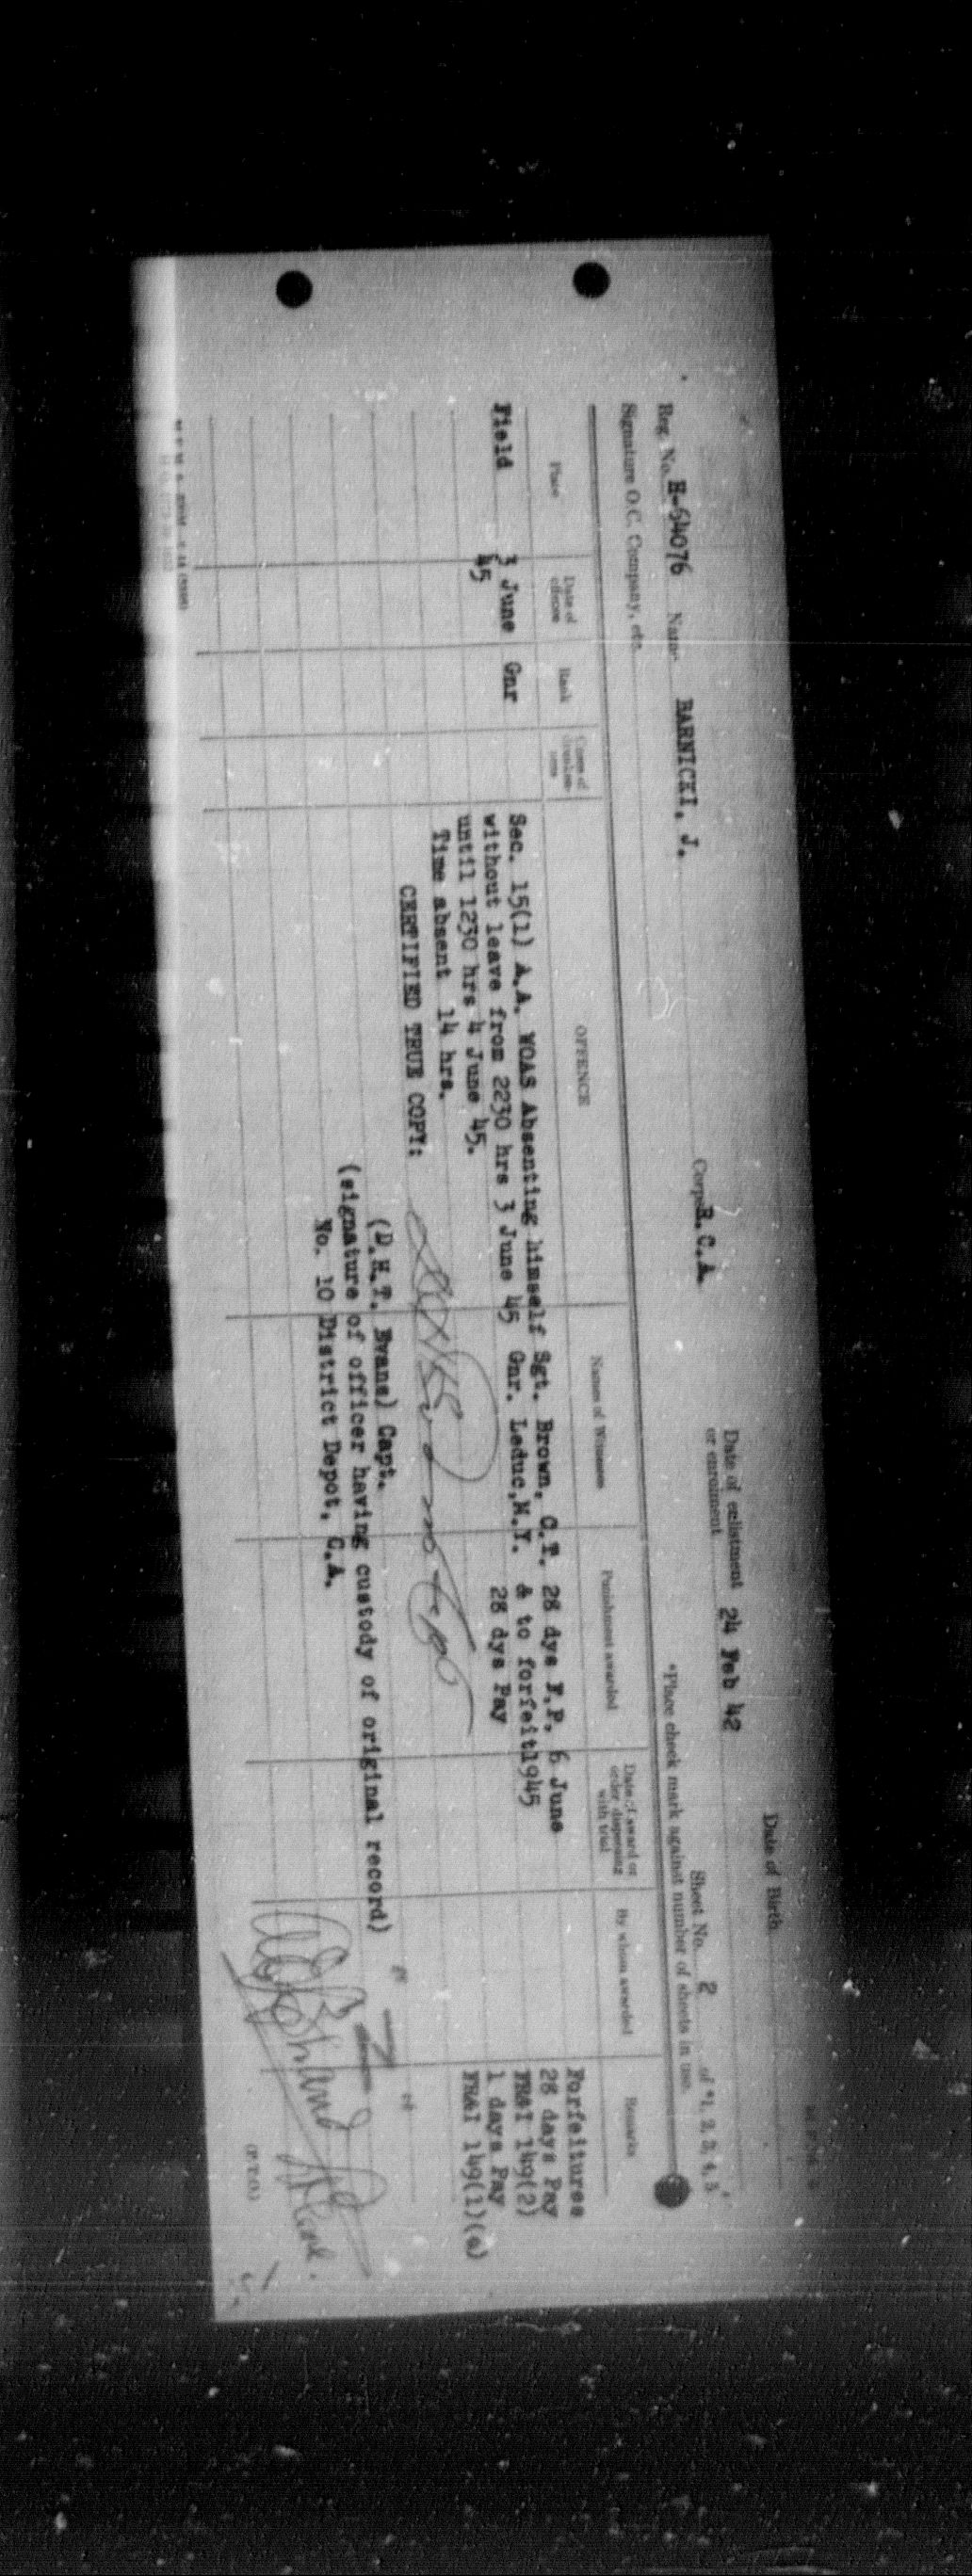 Date of Birth
Date of enlistment or enrolment 24 Feb 42
Sheet No. 2 of *1, 2, 3, 4, 5
Reg. No. H-64076 Name BARNICKI, J. Corps R.C.A.
*Place check mark against number of sheets in use.
Signature O.C. Company, etc.
Place Date of offence Rank Cases of drunkenness OFFENCE Names of Witnesses Punishment awarded Date of award or order dispensing with trial By whom awarded Remarks
Field 3 June 45 Gnr
Sec. 15(1) A.A. WOAS Absenting himself
without leave from 2230 hrs 3 June 45
until 1230 hrs 4 June 45.
Time absent 14 hrs.
Sgt. Brown, C.T.
Gnr. Leduc, M.Y.
28 dys F.P.
& to forfeit
28 dys Pay
6 June
1945
Forfeitures
28 days Pay
FR&I 149(2)
1 days Pay
FR&I 149(1)(a)
CERTIFIED TRUE COPY:
(D.H.T. Evans) Capt.
(signature of officer having custody of original record)
No. 10 District Depot, C.A.
(P.T.O.)